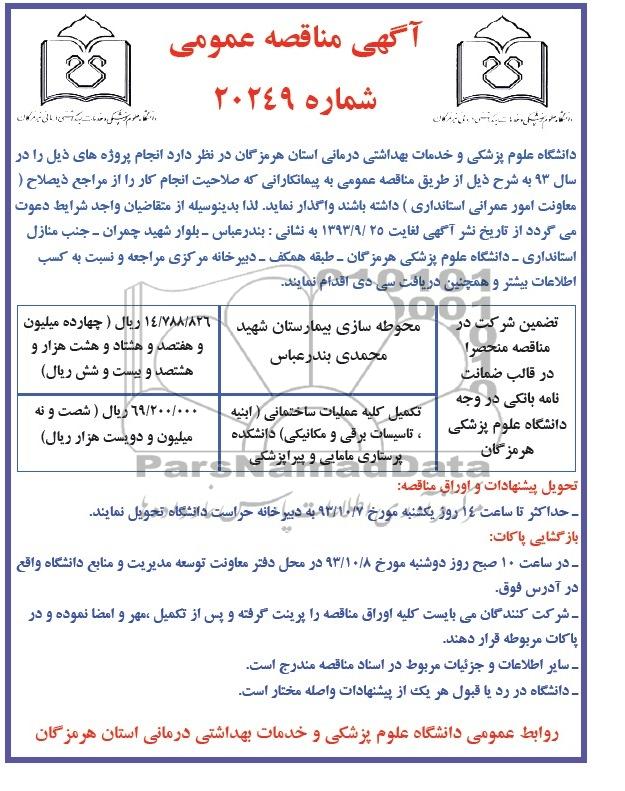 آگهی مناقصه عمومی
شماره ۲۰۲۴۹
دانشگاه علوم پزشکی و خدمات بهداشتی درمانی استان هرمزگان در نظر دارد انجام پروژه های ذیل را در
سال ۹۳ به شرح ذیل از طریق مناقصه عمومی به پیمانکارانی که صلاحیت انجام کار را از مراجع ذیصلاح (
معاونت امور عمرانی استانداری ) داشته باشند واگذار نماید. لذا بدینوسیله از متقاضیان واجد شرایط دعوت
می گردد از تاریخ نشر آگهی لغایت ۲۵ /۱۳۹۳/۹ به نشانی : بندرعباس ـ بلوار شهید چمران ـ جنب منازل
استانداری ـ دانشگاه علوم پزشکی هرمزگان ـ طبقه همکف ـ دبیرخانه مرکزی مراجعه و نسبت به کسب
اطلاعات بیشتر و همچنین دریافت سی دی اقدام نمایند.
تضمین شرکت در
مناقصه منحصرا
در قالب ضمانت
نامه بانکی در وجه
دانشگاه علوم پزشکی
هرمزگان
محوطه سازی بیمارستان شهید
محمدی بندرعباس
۱۴/۷۸۸/۸۲۶ ریال ( چهارده میلیون
و هفتصد و هشتاد و هشت هزار و
هشتصد و بیست و شش ریال)
تکمیل کلیه عملیات ساختمانی ( ابنیه
، تاسیسات برقی و مکانیکی) دانشکده
پرستاری مامایی و پیراپزشکی
۶۹/۲۰۰/۰۰۰ ریال ( شصت و نه
میلیون و دویست هزار ریال)
ParsNamadData
تحویل پیشنهادات و اوراق مناقصه:
ـ حداکثر تا ساعت ۱۴ روز یکشنبه مورخ ۹۳/۱۰/۷ به دبیرخانه حراست دانشگاه تحویل نمایند.
بازگشایی پاکات:
ـ در ساعت ۱۰ صبح روز دوشنبه مورخ ۹۳/۱۰/۸ در محل دفتر معاونت توسعه مدیریت و منابع دانشگاه واقع
در آدرس فوق.
ـ شرکت کنندگان می بایست کلیه اوراق مناقصه را پرینت گرفته و پس از تکمیل ،مهر و امضا نموده و در
پاکات مربوطه قرار دهند.
ـ سایر اطلاعات و جزئیات مربوط در اسناد مناقصه مندرج است.
ـ دانشگاه در رد یا قبول هر یک از پیشنهادات واصله مختار است.
روابط عمومی دانشگاه علوم پزشکی و خدمات بهداشتی درمانی استان هرمزگان